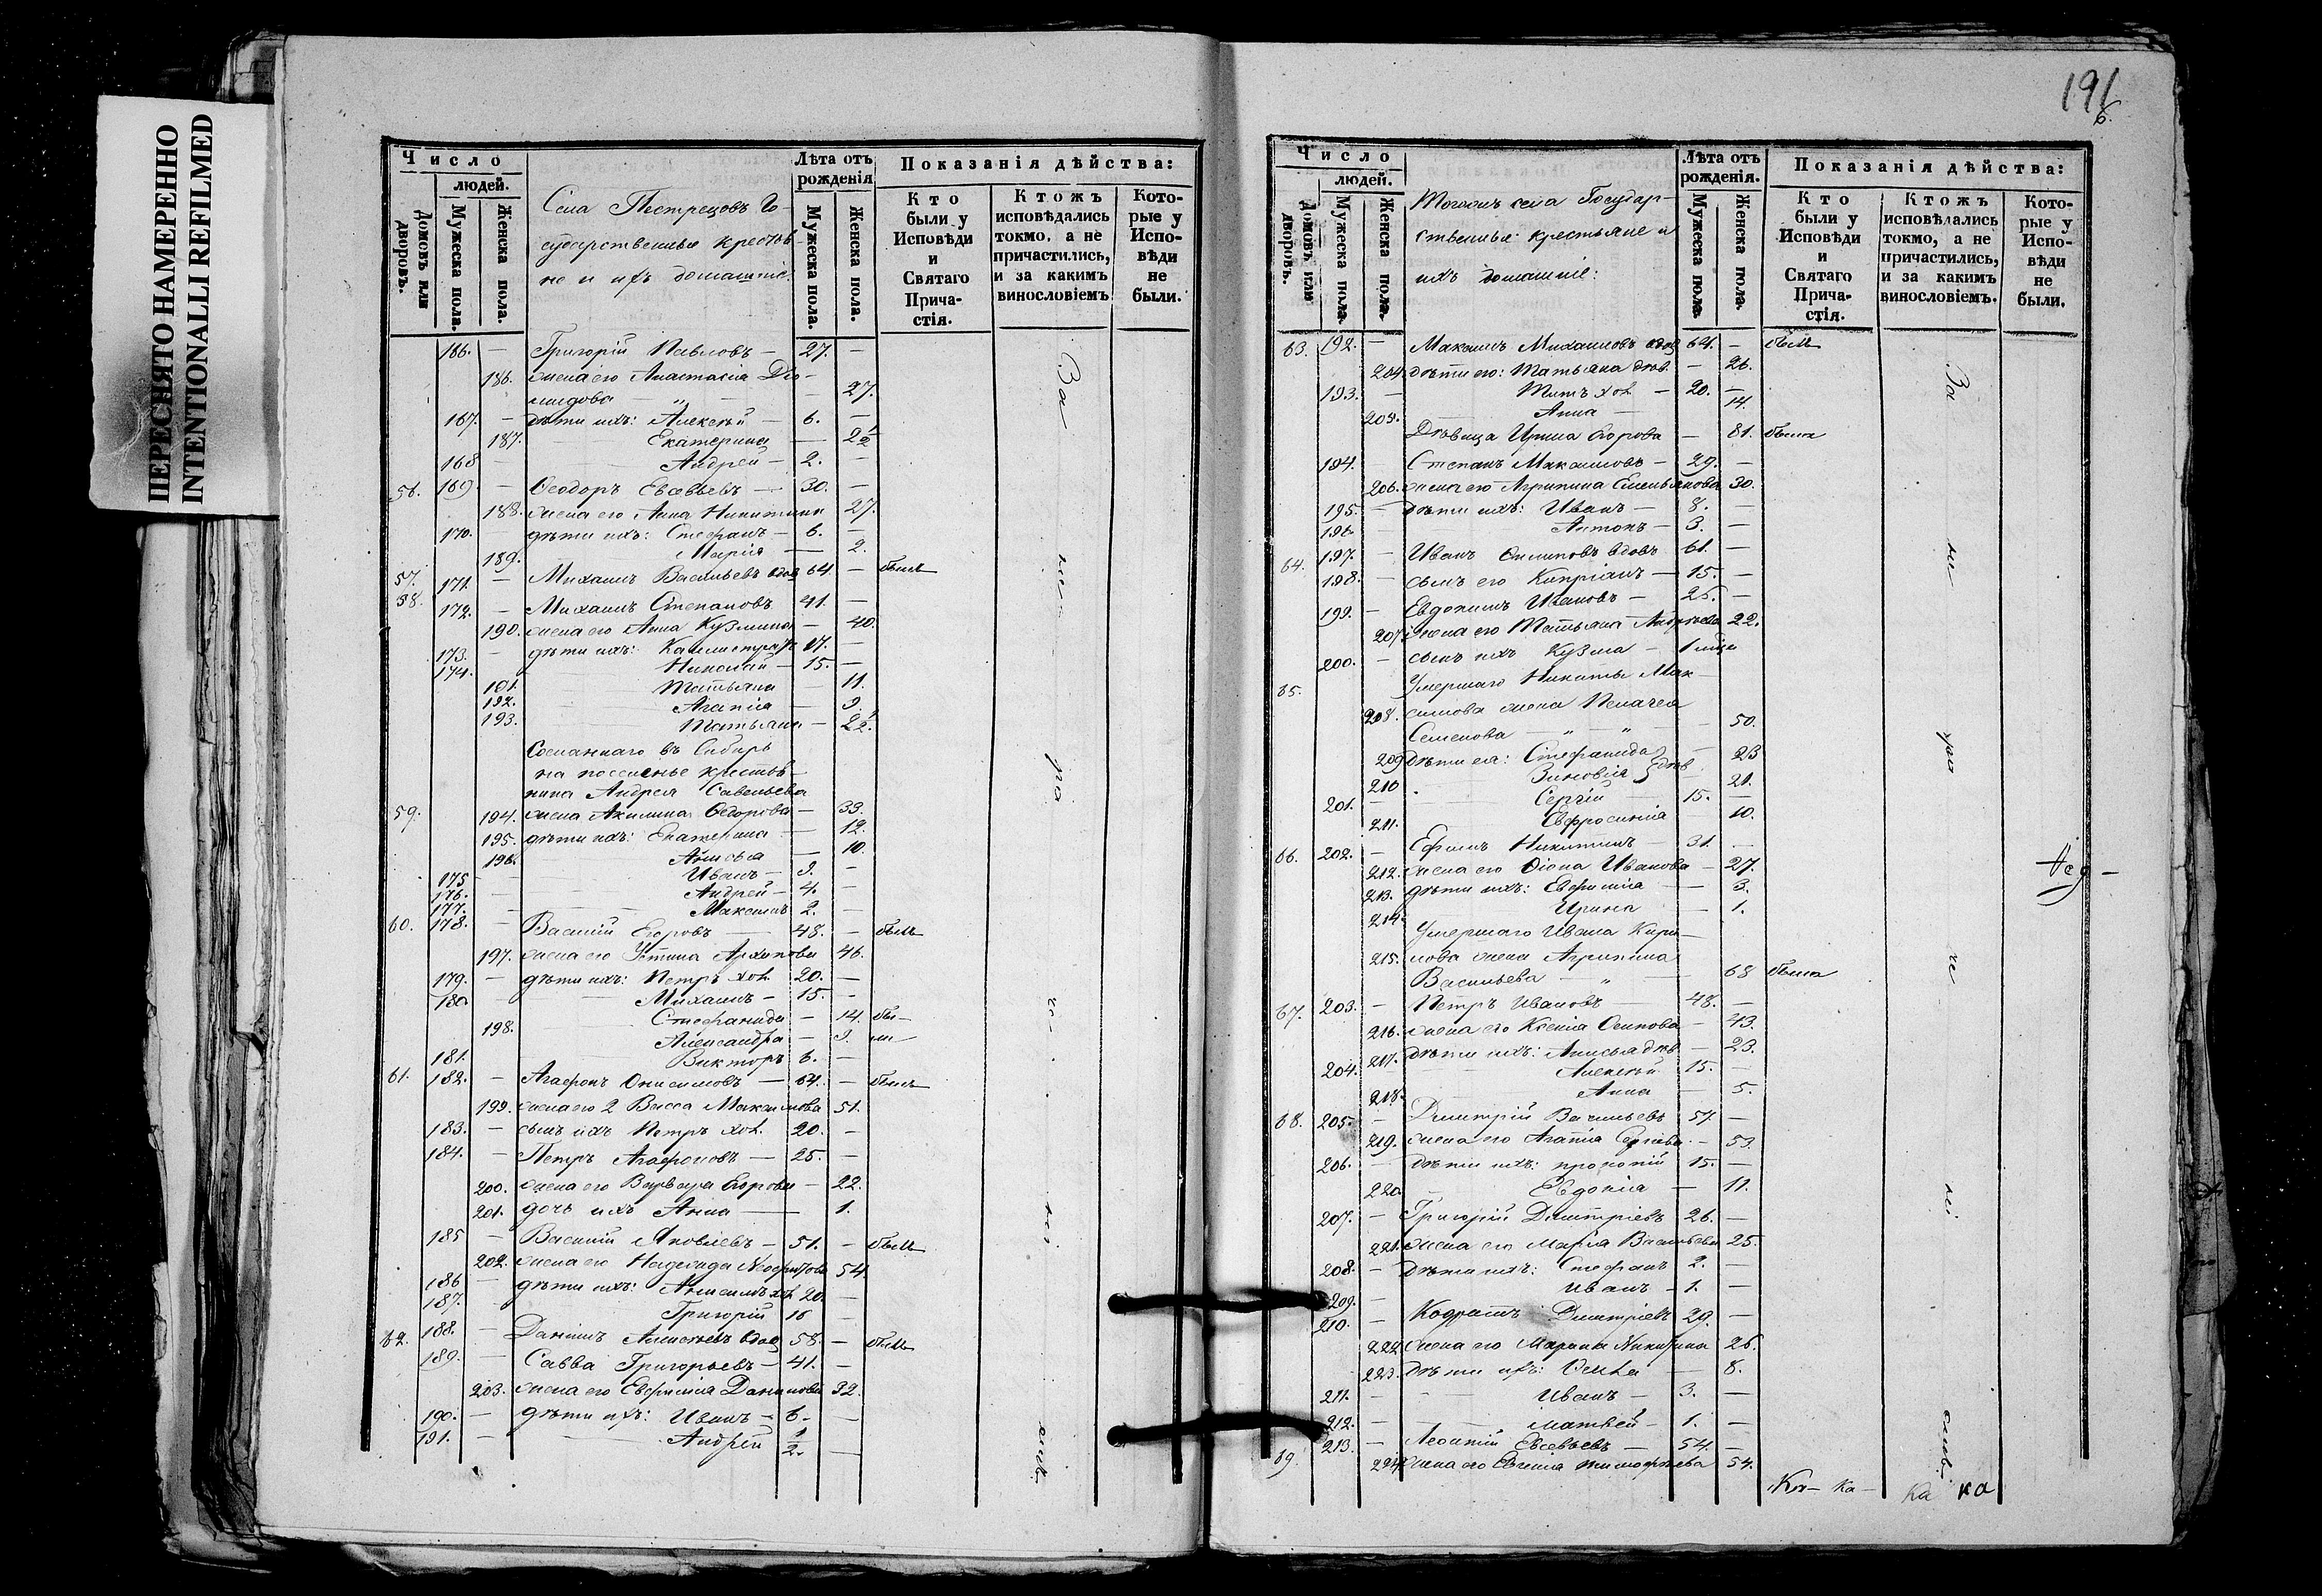 191
6.
ПЕРЕСНЯТО НАМЕРЕННО
INTENTIONALLI REFILMED
Число
людей.
Домовъ или дворовъ.
Мужеска пола.
Женска пола.
Села Пестрецовъ Го-
сударственные крестья-
не и ихъ домашніе:
Лѣта отъ рожденія
Мужеска пола.
Женска пола.
Показанія дѣйства:
Кто были у Исповѣди и Святаго Прича-стія.
Ктожъ исповѣдались токмо, а не причастились, и за какимъ винословіемъ
Кото-рые у Испо-вѣди не были.
166. — Григорій Павловъ — 27. —
186. жена его Анастасія Дio-
мидова — „ — — 27.
167. — дѣти ихъ: Алексѣй — 6. —
187. Екатерина — 2½
168 — Андрей — 2. —
56. 169. — Ѳеодоръ Евсевьевъ — 30. —
188. жена его Анна Никитина 27.
170. — дѣти ихъ: Стефанъ — 6. —
189. Марія — 2.
57. 171. — Михаилъ Васильевъ вдов 64 — былъ
58. 172. — Михаилъ Степановъ 41. —
190. жена его Анна Кузмина — 40.
173. — дѣти ихъ: Каллистратъ 17. —
174. Николай — 15. —
191. Татьяна — 11.
192. Агапія — 9.
193. Татьяна — 2½.
Сосланнаго въ Сибирь
на поселенье крестья-
нина Андрея Савельева
59. 194. жена Акилина Ѳедорова — 33.
195. дѣти ихъ: Екатерина — 12.
196. Анисья — 10.
175 — Иванъ — 9. —
176. — Андрей — 4. —
177. — Максимъ 2. —
60. 178. — Василій Егоровъ — 48. — былъ
197. жена его Устина Архипова 46.
179. — дѣти ихъ: Петръ хол. 20. —
180 — Михаилъ — 15. —
198. Стефанида — 14. бы-
Александра — 9. ли
181. Викторъ 6. —
61. 182. — Агафонъ Онисимовъ — 64. — былъ
199. жена его 2 Васса Максимова 51.
183. — сынъ ихъ Петръ хол. 20. —
184. — Петръ Агафоновъ — 25. —
200. жена его Варвара Егорова — 22.
201. дочь ихъ Анна — 1.
185 — Василій Яковлевъ — 51. — былъ
202. жена его Надежда Неофитова 54
186 — дѣти ихъ: Анисимъ хол. 20. —
187. Григорій 16
62. 188. — Даніилъ Алексѣевъ вдов 58. — былъ
189. — Савва Григорьевъ — 41. —
203. жена его Евфимія Данилова 32.
190. — дѣти ихъ: Иванъ — 6. —
191. — Андрей ½. —
За не ра че ні емъ
Число
людей.
Домовъ или дворовъ.
Мужеска пола.
Женска пола.
Тогожъ села Государ-
ственные крестьяне и
ихъ домашніе:
Лѣта отъ рожденія.
Мужеска пола.
Женска пола.
Показанія дѣйства:
Кто были у Исповѣди и Святаго Прича-стія.
Ктожъ исповѣдались токмо, а не причастились, и за какимъ винословіемъ.
Кото-рые у Испо-вѣди не были.
63. 192. — Максимъ Михаиловъ вдов 64. — былъ
204. дѣти его: Татьяна дѣв. — 26.
193. — Титъ хол. — 20. —
205. Анна — 14.
Дѣвица Ирина Егорова — 81. была
194. Степанъ Максимовъ — 29. —
206. жена его Агрипина Емельянова 30.
195. — дѣти ихъ: Иванъ — 8. —
196 Антонъ — 3. —
64. 197. — Иванъ вдовъ 61. —
198. — сынъ его Кипріанъ — 15. —
199. — Евдокимъ Ивановъ — 25. —
207. жена его Татьяна Андреева 22.
200. — сынъ ихъ Кузма —
65. Умершаго Никиты Мак-
208. симова жена Пелагея
Семенова — „ — „ — 50.
209 дѣти ея: Стефанида — 23
210 Зиновія } дѣв — 21.
201. — Сергій — 15. —
211. Евфросинія — 10.
66. 202. — Ефимъ Никитинъ — 31. —
212. жена его Ѳіона Иванова — 27.
213. дѣти ихъ: Евфимія — 3.
214. Ирина — 1.
Умершаго Ивана Кири-
215. лова жена Агрипина
Васильева — „ — 68 была
67. 203. — Петръ Ивановъ — 48. —
216. жена его Ксенія Осипова — 43.
217. дѣти ихъ: Анисья дѣв — 23.
204. Алексѣй 15. —
218. Анна — 5.
68. 205. — Димитрій Васильевъ 57. —
219. жена его Агапія Сергіева. — 53.
206. — дѣти ихъ: прокопій 15. —
220. Евдокія — 11.
207. — Григорій Димитріевъ 26. —
221. жена его Марѳа Васильева 25.
208. — дѣти ихъ: Стефанъ 2. —
209. — Иванъ — 1. —
210. — Кодратъ Димитріевъ 29. —
222. жена его Марина Никитина 26.
223. дѣти ихъ: Ѳекла — 8.
211. — Иванъ — 3. —
212. — Матвей — 1. —
69. 213. — Леонтій Евсевьевъ — 54. —
224. жена его Евгенія тимофѣева 54.
За не ра че ні емъ.
Ка — ка — ка ка